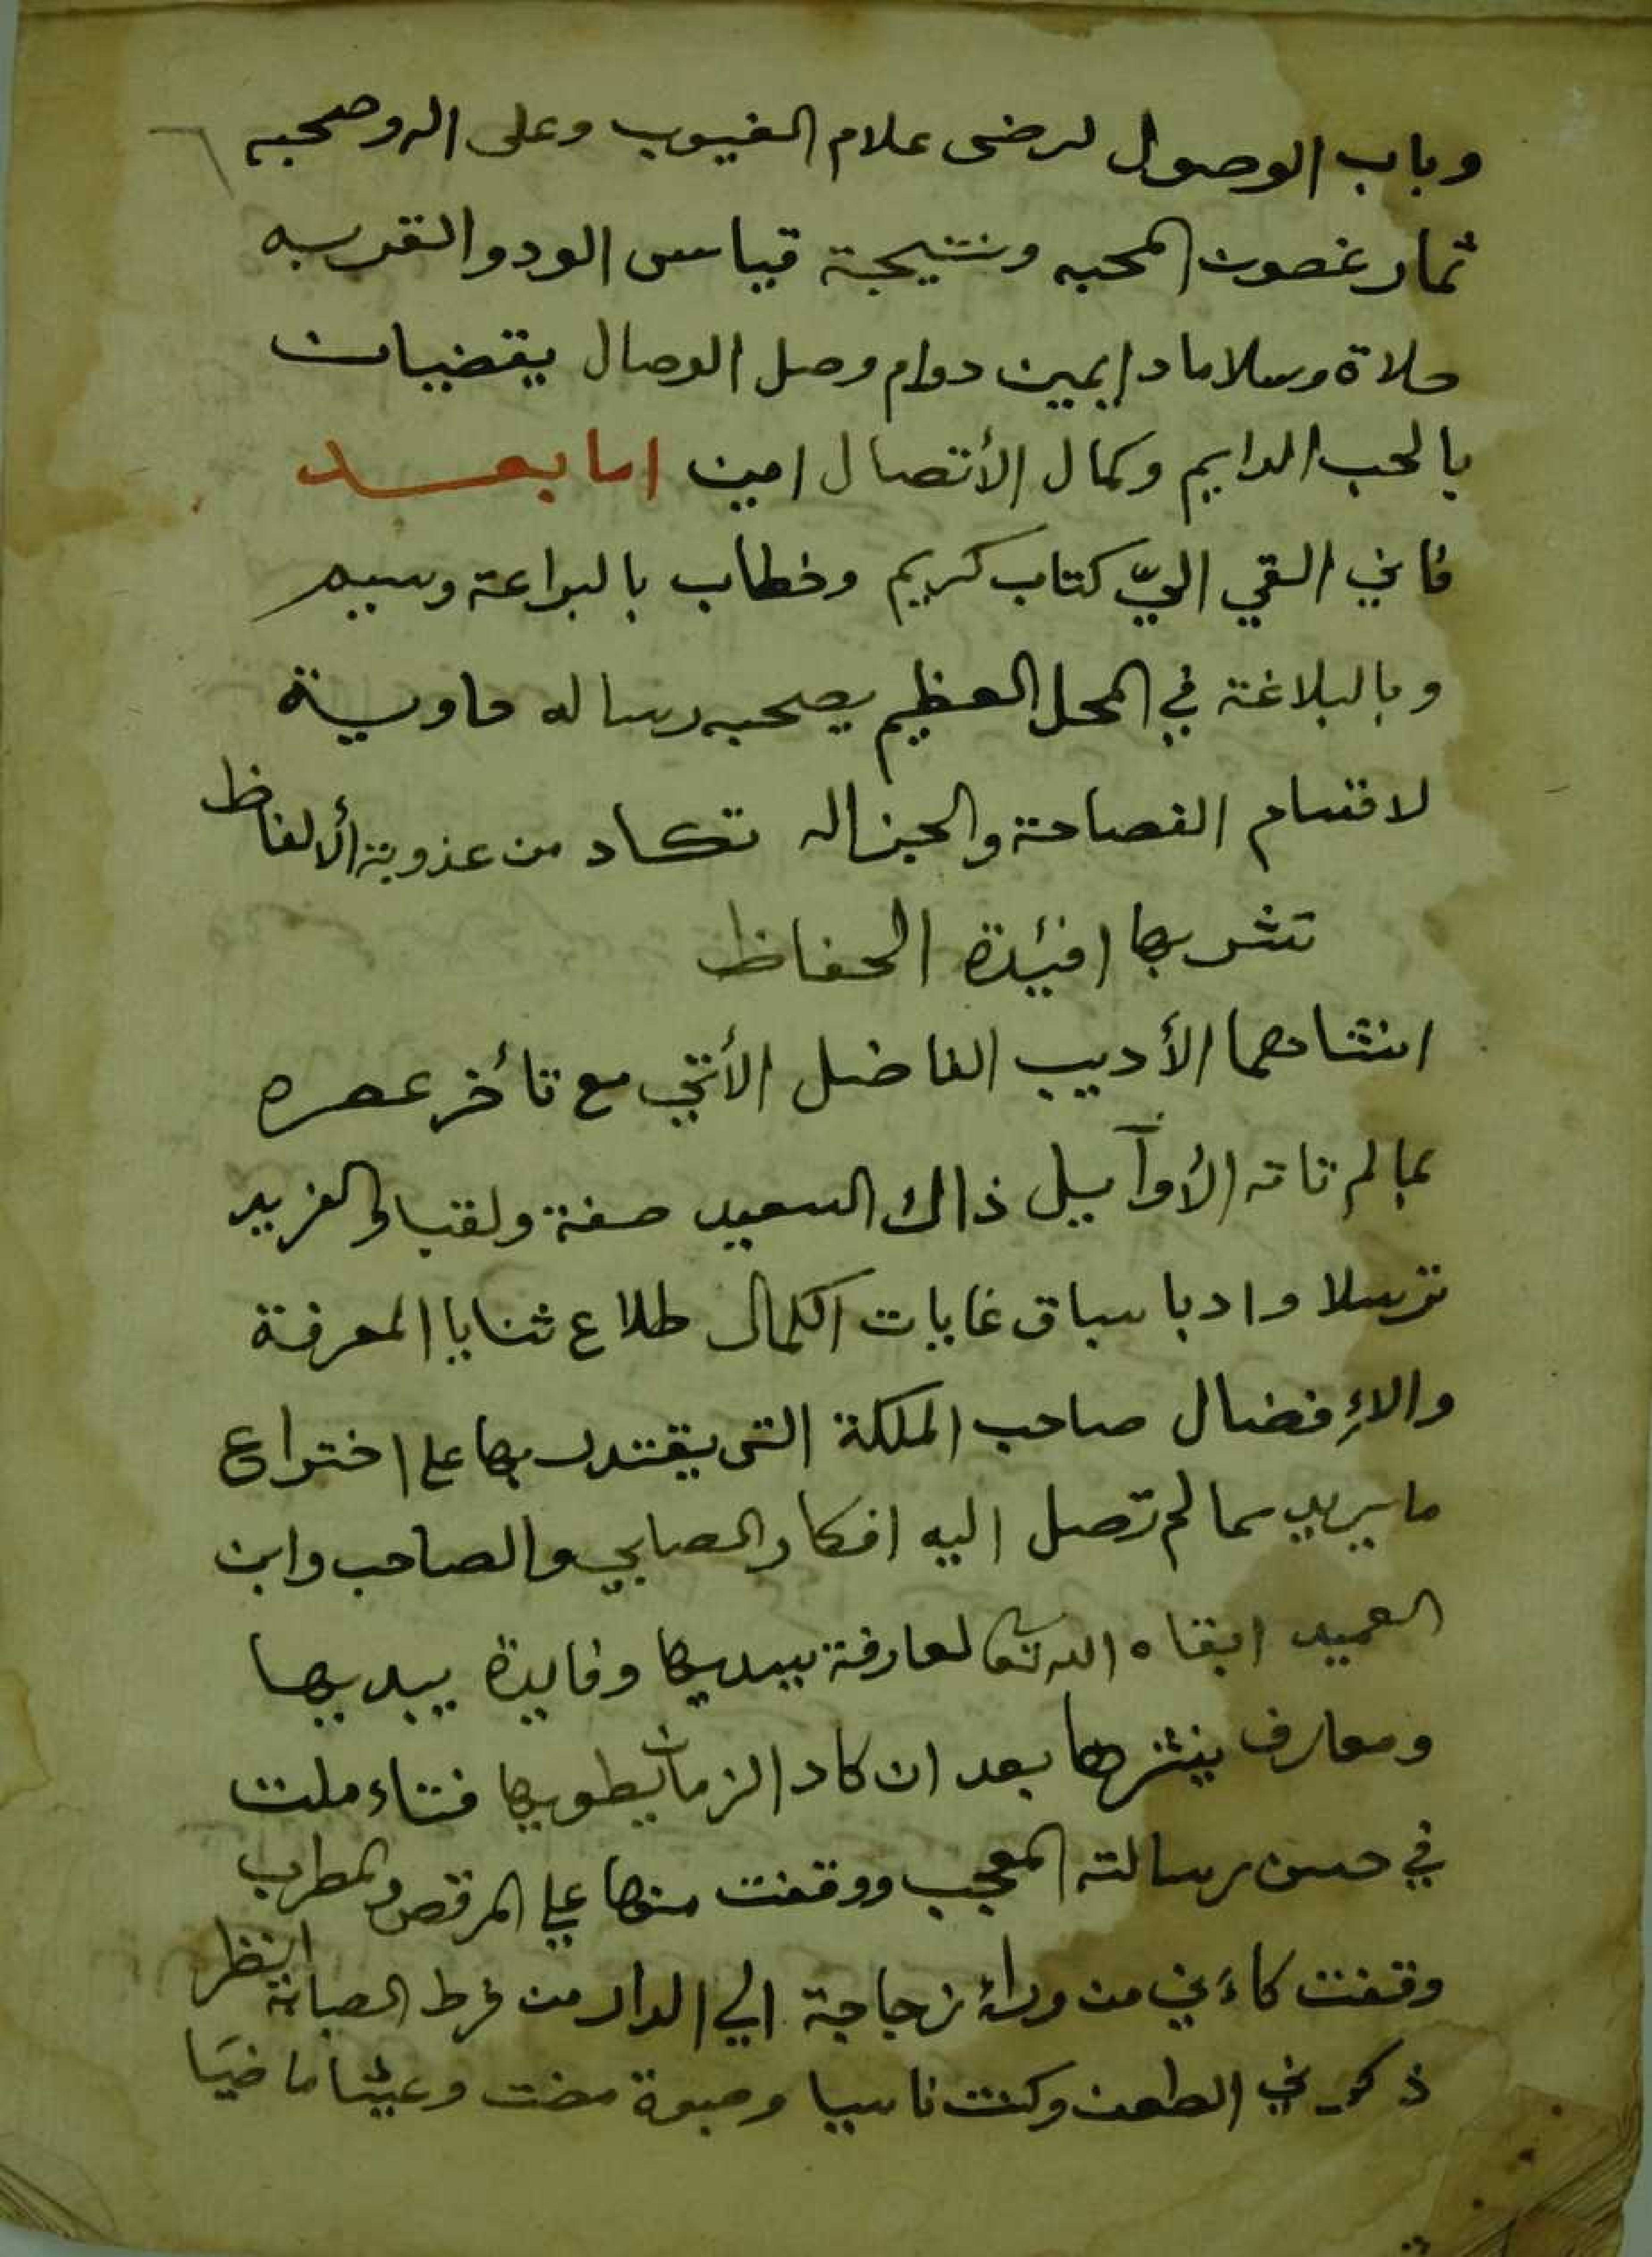 وباب الوصول لرضى علام الغيوب وعلى اله وصحبه
ثمار غصون المحبه ونتيجة قياس الود والقربه
صلاة وسلاما دايمين دوام وصل الوصال يقضيان
بالحب الدايم وكمال الأتصال امين اما بعد
فاني القي اليّ كتاب كريم وخطاب بالبراعة وسيم
وبالبلاغة في المحل العظيم يصحبه رساله حاوية
لاقسام الفصاحة والجزاله تكاد من عذوبة الألفاظ
تشربها افئيدة الحفاظ
انشاهما الأديب الفاضل الأتي مع تأخر عصره
بمالم تاته الأوآيل ذاك السعيد صفة ولقبا والفريد
ترسلا وادبا سباق غايات الكمال طلاع ثنايا المعرفة
والإفضال صاحب الملكة التى يقتدر بها على اختراع
ما يريد مما لم تصل اليه افكار الصابي والصاحب وابن
العميد ابقاه الله تعا لعارفة يسديها وفايدة يبديها
ومعارف ينشرها بعد ان كاد الزمان يطويها فتاءملت
في حسن رسالته المعجب ووقفت منها علي المرقص والمطرب
وقفت كاءني من وراء زجاجة الي الدار من فرط الصبابة انظر
ذكرني الطعن وكنت ناسيا وصبوة مضت وعيشا ماضيَا